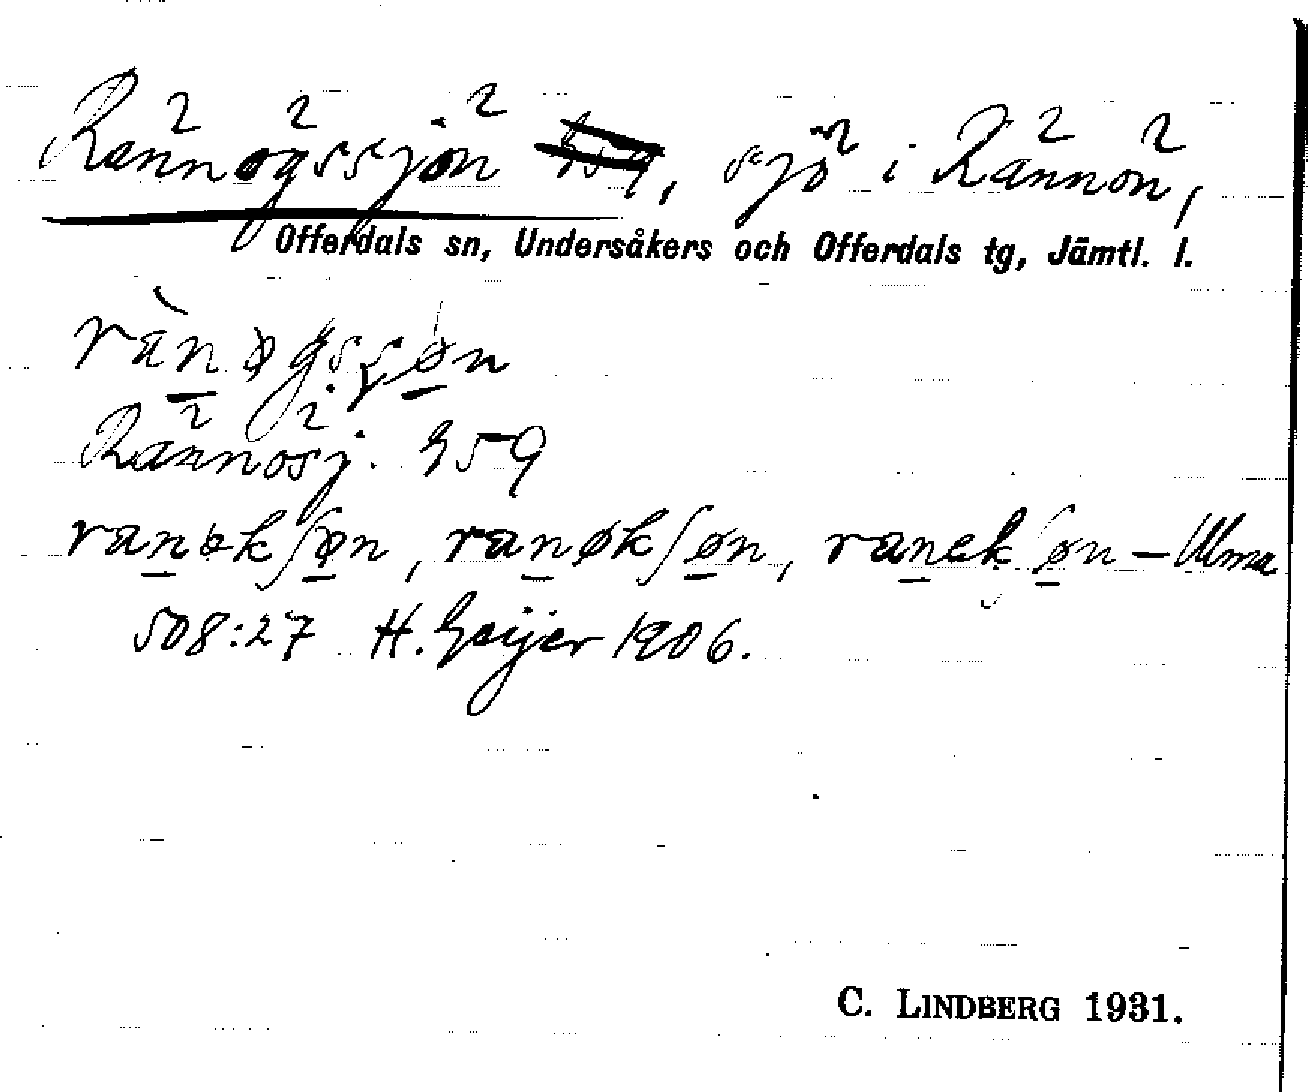 Rännögssjön G59, sjö i Rännön,
Offerdals sn, Undersåkers och Offerdals tg, Jämtl. l.
rànøgsʂøn
Rännösj. G59
ranøkʃøn, ranøkʃøn, ranekʃøn – Ulma
508:27 H. Geijer 1906.
C. LINDBERG 1931.